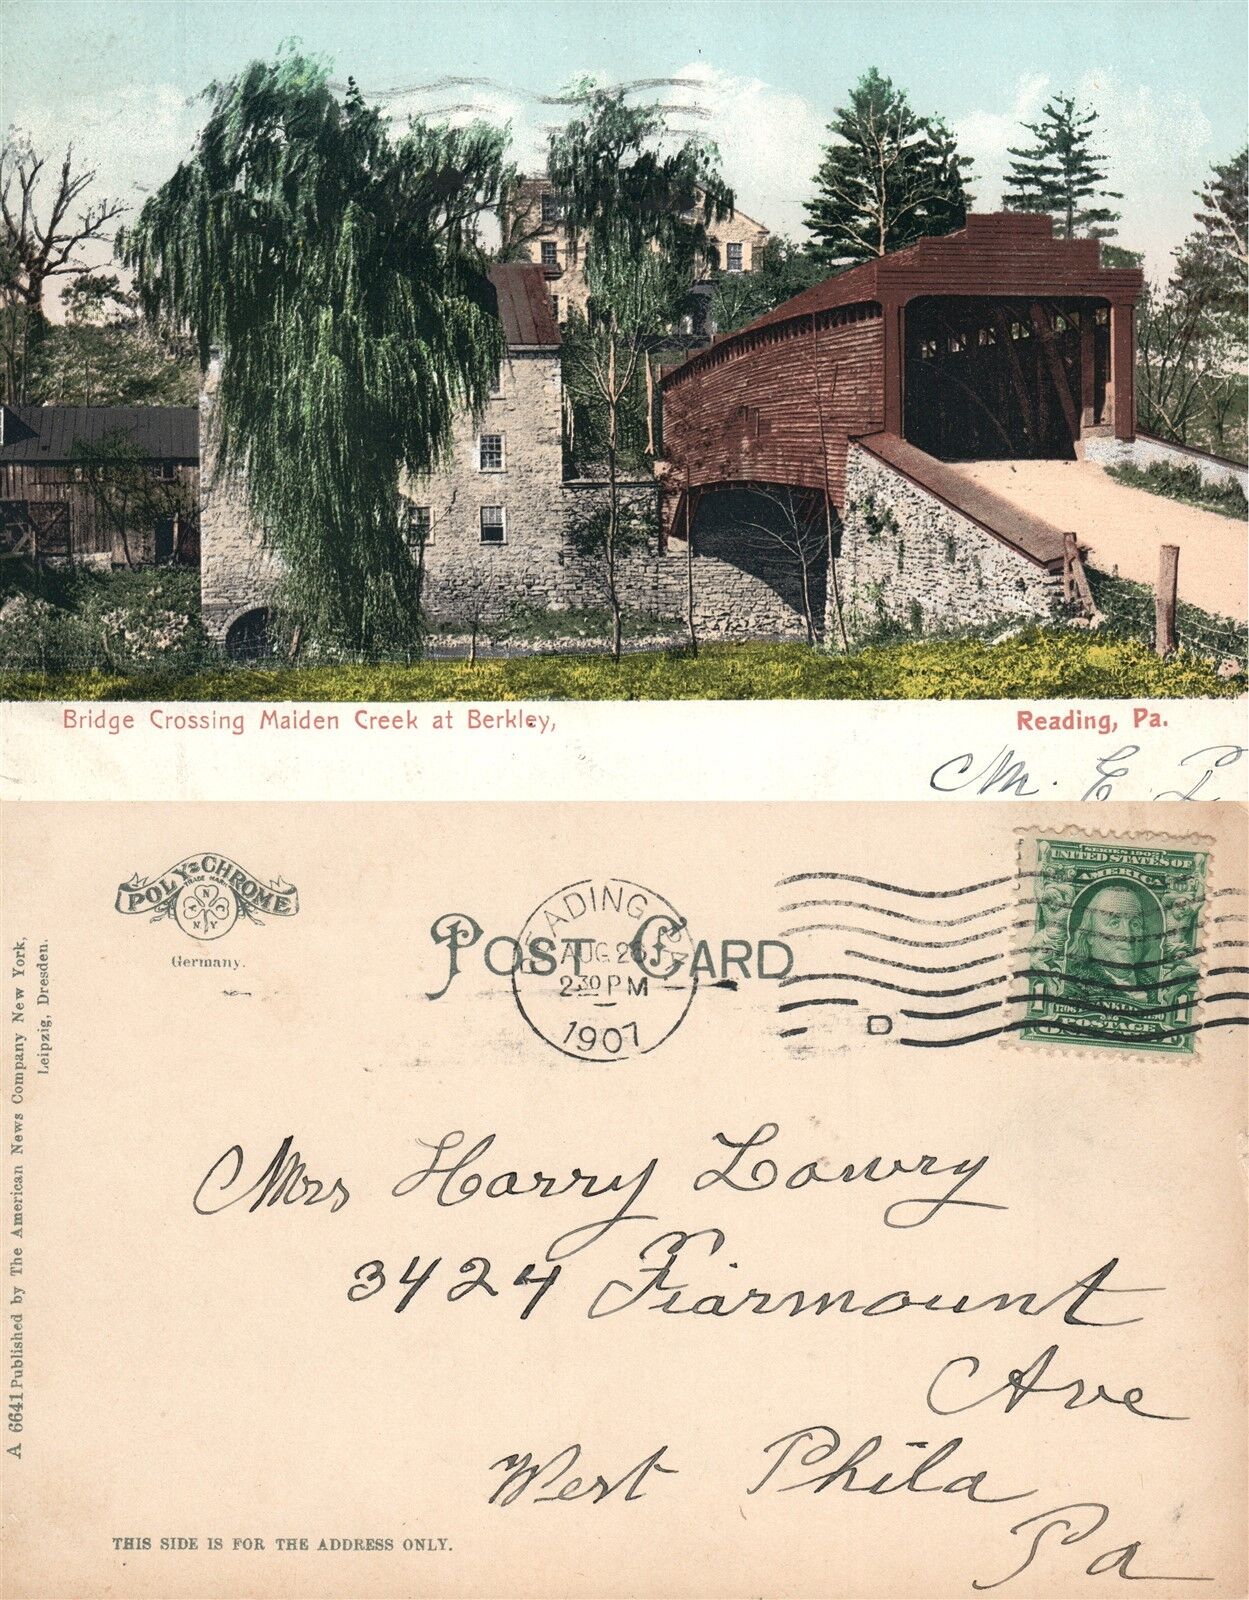 Bridge Crossing Maiden Creek at Berkley,
Reading, Pa.
M. E. L
POLY-CHROME
TRADE MARK
A N C
N Y
Germany.
POST CARD
READING, PA.
AUG 26
2 30 PM
1907
D
SERIES 1902
UNITED STATES OF
AMERICA
1 FRANKLIN 1
1706 1790
POSTAGE
A 6641 Published by The American News Company New York,
Leipzig, Dresden.
Mrs Harry Lowry
3424 Fiarmount
Ave
West Phila
Pa
THIS SIDE IS FOR THE ADDRESS ONLY.